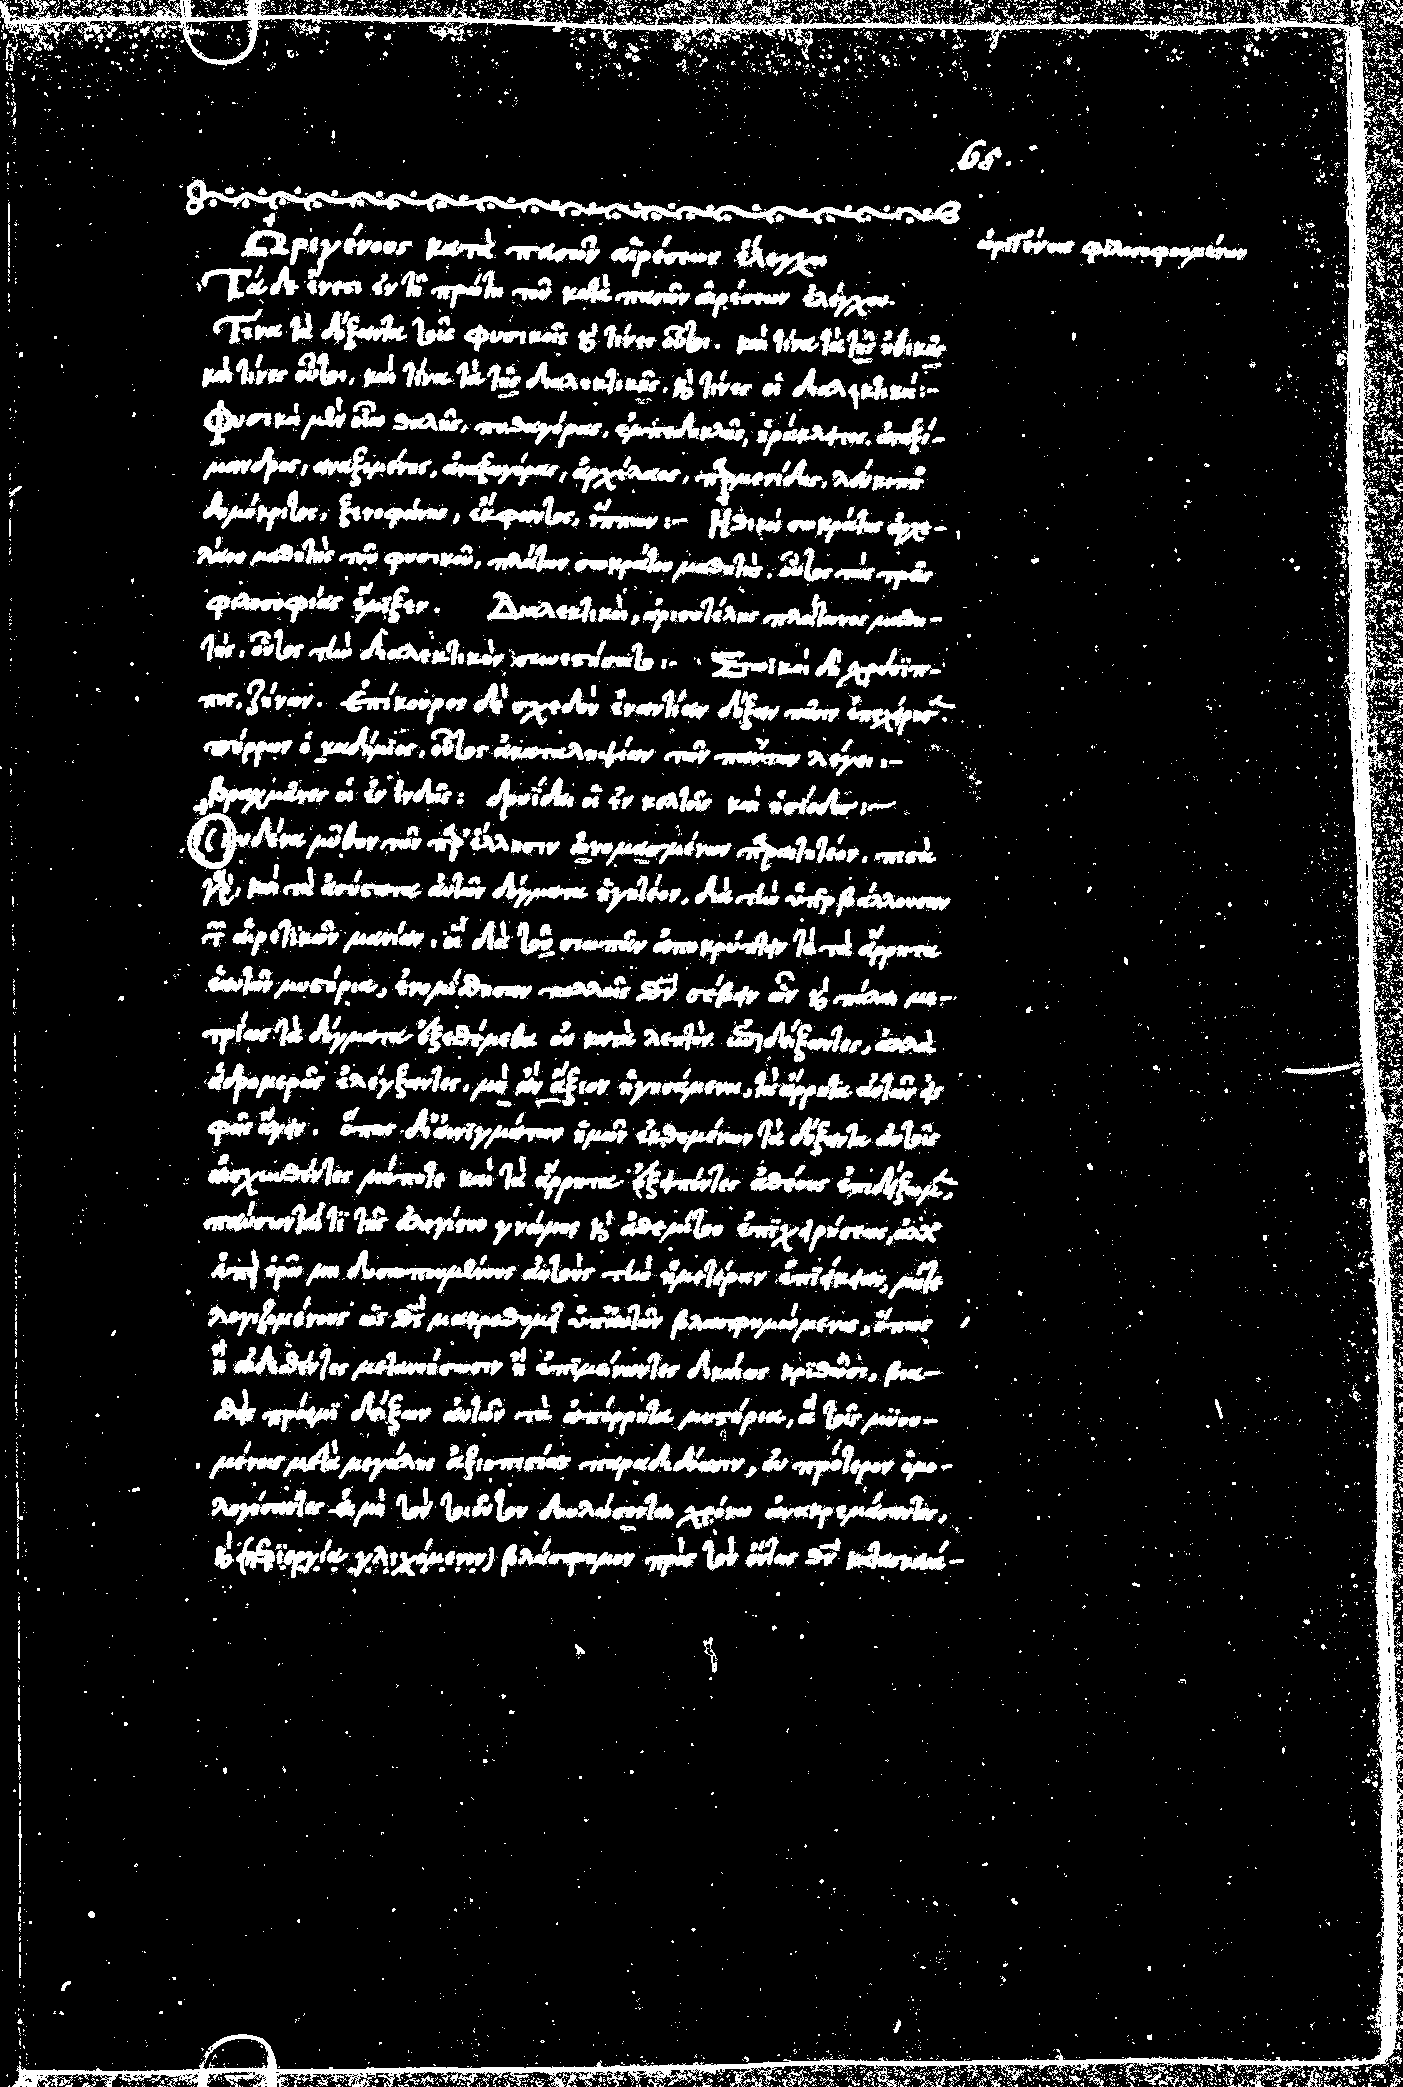 65.
Ὠριγένους κατὰ πασῶν αἱρέσεων ἔλεγχος
ὠριγένους φιλοσοφουμένων
Τάδε ἔνεστι ἐν τῇ πρώτῃ τοῦ κατὰ πασῶν αἱρέσεων ἐλέγχου.
Τίνα τὰ δόξαντα τοῖς φυσικοῖς καὶ τίνες οὗτοι. καὶ τίνα τὰ τοῖς ἠθικοῖς
καὶ τίνες οὗτοι. καὶ τίνα τὰ τοῖς διαλεκτικοῖς. καὶ τίνες οἱ διαλεκτικοί:-
Φυσικοὶ μὲν οὖν θαλῆς, πυθαγόρας, ἐμπεδοκλῆς, ἡράκλειτος, ἀναξί-
μανδρος, ἀναξιμένης, ἀναξαγόρας, ἀρχέλαος, παρμενίδης, λεύκιππος
δημόκριτος, ξενοφάνης, ἔκφαντος, ἵππων:- Ἠθικοὶ σωκράτης ἀρχε-
λάου μαθητὴς τοῦ φυσικοῦ, πλάτων σωκράτου μαθητής. οὗτος τὰς τρεῖς
φιλοσοφίας ἔμιξεν. Διαλεκτικοὶ, ἀριστοτέλης πλάτωνος μαθη-
τής. οὗτος τὴν διαλεκτικὴν συνεστήσατο:- Στωικοὶ δὲ χρύσιπ-
πος, ζήνων. ἐπίκουρος δὲ σχεδὸν ἐναντίαν δόξαν πᾶσιν ἐπεχείρησεν.
πύρρων ὁ ἀκαδήμιος, οὗτος ἀκαταληψίαν τῶν πάντων λέγει:-
βραχμᾶνες οἱ ἐν ἰνδοῖς: δρυΐδαι οἱ ἐν κελτοῖς καὶ ἡσίοδος:-
Οὐδένα μῦθον τῶν παρ' ἕλλησιν ὠνομασμένων παραιτητέον. πιστὰ
γὰρ καὶ τὰ ἀσύστατα αὐτῶν δόγματα ἡγητέον, διὰ τὴν ὑπερβάλλουσαν
τῶν αἱρετικῶν μανίαν. οἳ διὰ τὸ σιωπᾶν ἀποκρύπτειν τε τὰ ἄρρητα
ἑαυτῶν μυστήρια, ἐνομίσθησαν πολλοῖς θεὸν σέβειν ὧν καὶ πάλαι με-
τρίως τὰ δόγματα ἐξεθέμεθα οὐ κατὰ λεπτὸν ἐπιδείξαντες, ἀλλὰ
ἁδρομερῶς ἐλέγξαντες. μὴ ἂν ἄξιον ἡγησάμενοι, τὰ ἄρρητα αὐτῶν εἰς
φῶς ἄγειν. ὅπως δι' αἰνιγμάτων ἡμῶν ἐκθεμένων τὰ δόξαντα αὐτοῖς
αἰσχυνθέντες μήποτε καὶ τὰ ἄρρητα ἐξειπόντες ἀθέους ἐπιδείξωμεν,
παύσωνταί τι τῆς ἀλογίστου γνώμης καὶ ἀθεμίτου ἐπιχειρήσεως, ἀλλ'
ἐπεὶ ὁρῶ μὴ δυσωπουμένους αὐτοὺς τὴν ἡμετέραν ἐπιείκειαν, μήτε
λογιζομένους ὡς θεὸς μακροθυμεῖ ὑπ' αὐτῶν βλασφημούμενος, ὅπως
ἢ αἰδεσθέντες μετανοήσωσιν ἢ ἐπιμείναντες δικαίως κριθῶσι, βια-
σθεὶς πρόειμι δείξων αὐτῶν τὰ ἀπόρρητα μυστήρια, ἃ τοῖς μυου-
μένοις μετὰ μεγάλης ἀξιοπιστίας παραδιδόασιν, οὐ πρότερον ὁμο-
λογήσαντες εἰ μὴ τὸν τοιοῦτον δουλώσωνται χρόνῳ ἀνακρεμάσαντες,
καὶ (περιεργίᾳ γλιχόμενον) βλάσφημον πρὸς τὸν ὄντως θεὸν κατασκευά-